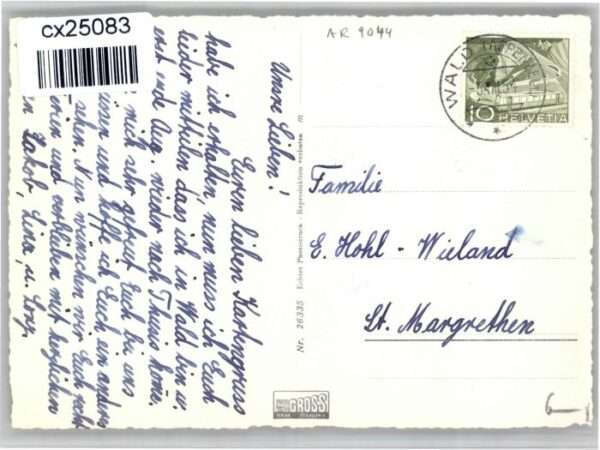 cx25083
AR 9044
WALD (APPENZELL)
10 HELVETIA
Unsre Lieben!
Euren lieben Kartengruss
habe ich erhalten, nun muss ich Euch
leider mitteilen, dass ich in Wald bin u.
erst ende Aug. wieder nach Thuis komme.
mich sehr gefreut Euch bei uns
und hoffe ich Euch ein anders
sehen. Nun wünschen wir Euch recht
Ferien und verbleiben mit herzlichen
Jakob, Lina, u.
Familie
E. Hohl - Wieland
St. Margrethen
Nr. 26335 Echter Photodruck - Reproduktion verboten
GROSS
6